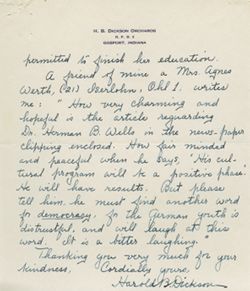 H. B. DICKSON ORCHARDS
R. F. D. 2
GOSPORT, INDIANA
permitted to finish her education.
A friend of mine a Mrs. Agnes
Werth, (21) Iserlohn, Ohl 1. writes
me: " How very charming and
hopeful is the article reguarding
Dr. Herman B. Wells in the news-paper
clipping enclosed. How fair minded
and peaceful when he says, 'His cul-
tural program will be a positive phase.'
He will have results. But please
tell him, he must find another word
for democracy, for the German youth is
distrustful, and will laugh at this
word. It is a bitter laughing."
Thanking you very much for your
kindness, Cordially yours,
Harold B. Dickson